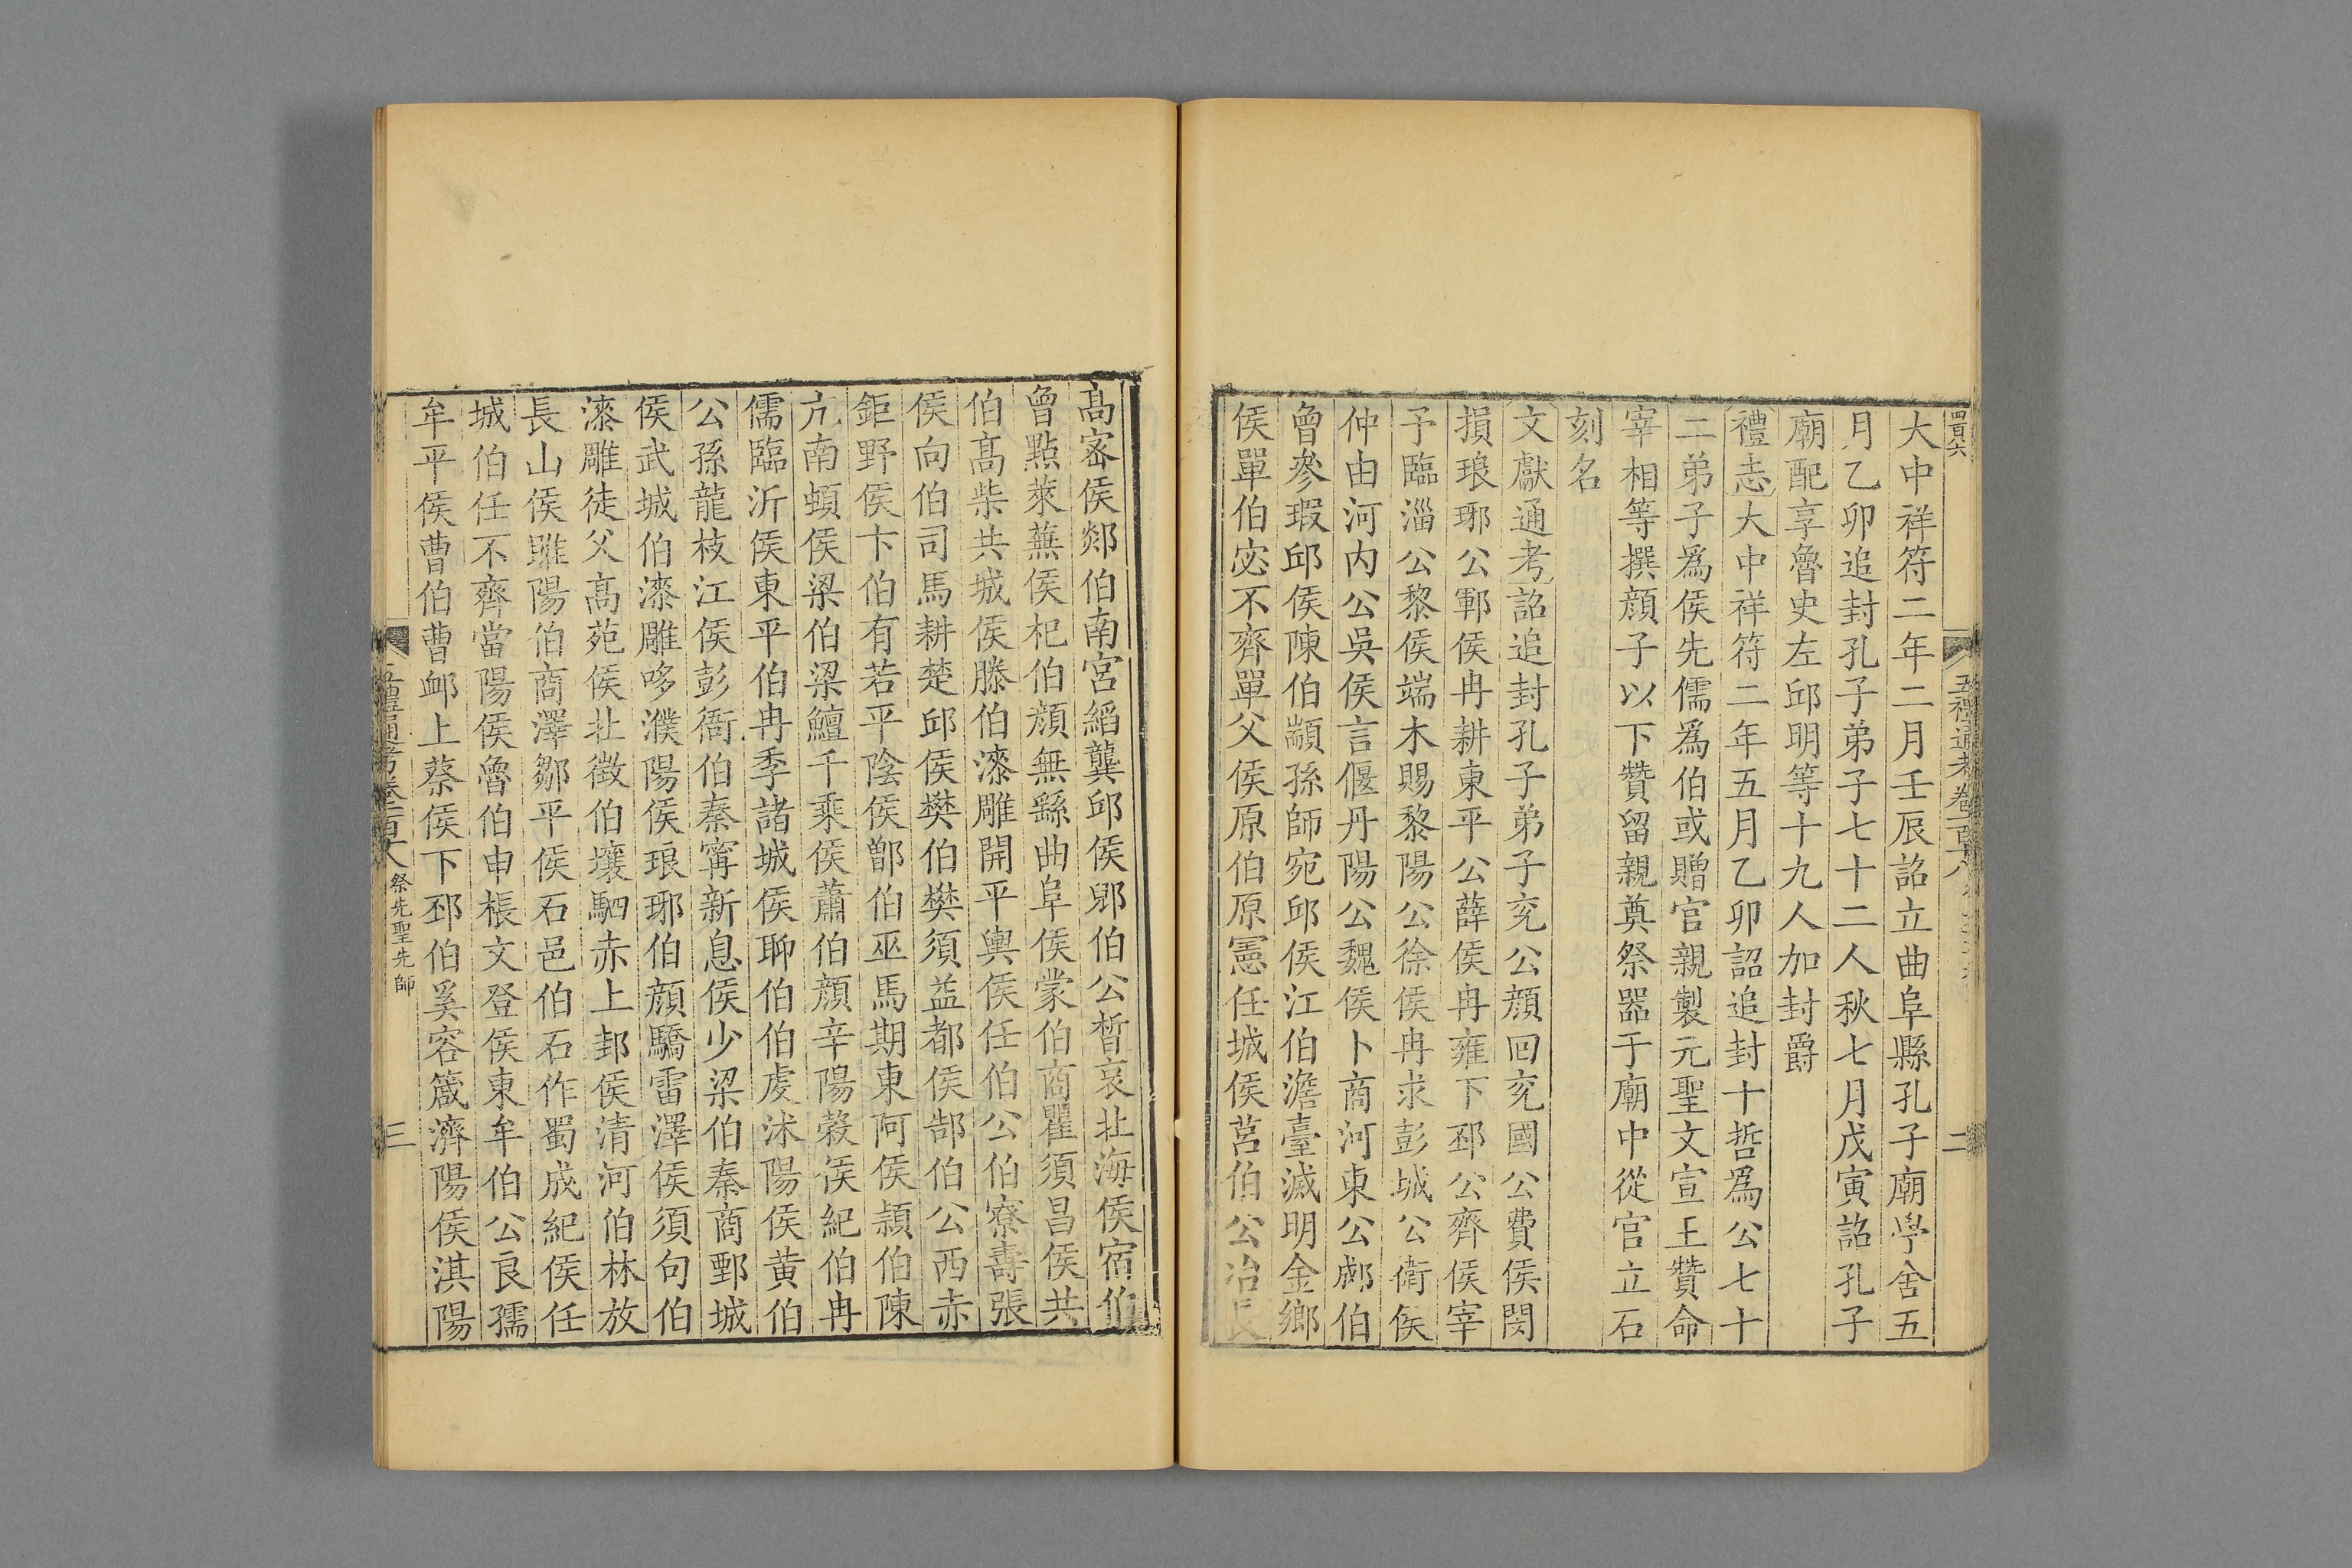 大中祥符二年二月壬辰詔立曲阜縣孔子廟學舍五
月乙卯追封孔子弟子七十二人秋七月戊寅詔孔子
廟配享魯史左邱明等十九人加封爵
禮志大中祥符二年五月乙卯詔追封十哲爲公七十
二弟子爲侯先儒爲伯或贈官親製元聖文宣王贊命
宰相等撰顔子以下贊留親奠祭器于廟中從官立石
刻名
文獻通考詔追封孔子弟子兖公顔回兖國公費侯閔
損琅琊公鄆侯冉耕東平公薛侯冉雍下邳公齊侯宰
予臨淄公黎侯端木賜黎陽公徐侯冉求彭城公衛侯
仲由河内公吳侯言偃丹陽公魏侯卜商河東公郕伯
曾參瑕邱侯陳伯顓孫師宛邱侯江伯澹臺滅明金鄉
侯單伯宓不齊單父侯原伯原憲任城侯莒伯公冶長
高密侯郯伯南宮縚龔邱侯郳伯公晳哀北海侯宿伯
曾點萊蕪侯杞伯顔無繇曲阜侯蒙伯商瞿須昌侯共
伯高柴共城侯滕伯漆雕開平輿侯任伯公伯寮壽張
侯向伯司馬耕楚邱侯樊伯樊須益都侯郜伯公西赤
鉅野侯卞伯有若平陰侯鄫伯巫馬期東阿侯潁伯陳
亢南頓侯梁伯梁鱣千乘侯蕭伯顔辛陽穀侯紀伯冉
儒臨沂侯東平伯冉季諸城侯聊伯伯虔沭陽侯黄伯
公孫龍枝江侯彭衙伯秦寗新息侯少梁伯秦商鄄城
侯武城伯漆雕哆濮陽侯琅琊伯顔驕雷澤侯須句伯
漆雕徒父高苑侯北徵伯壤駟赤上邽侯清河伯林放
長山侯睢陽伯商澤鄒平侯石邑伯石作蜀成紀侯任
城伯任不齊當陽侯魯伯申棖文登侯東牟伯公良孺
牟平侯曹伯曹卹上蔡侯下邳伯奚容箴濟陽侯淇陽
五禮通考卷一百十八 祭先聖先師 三